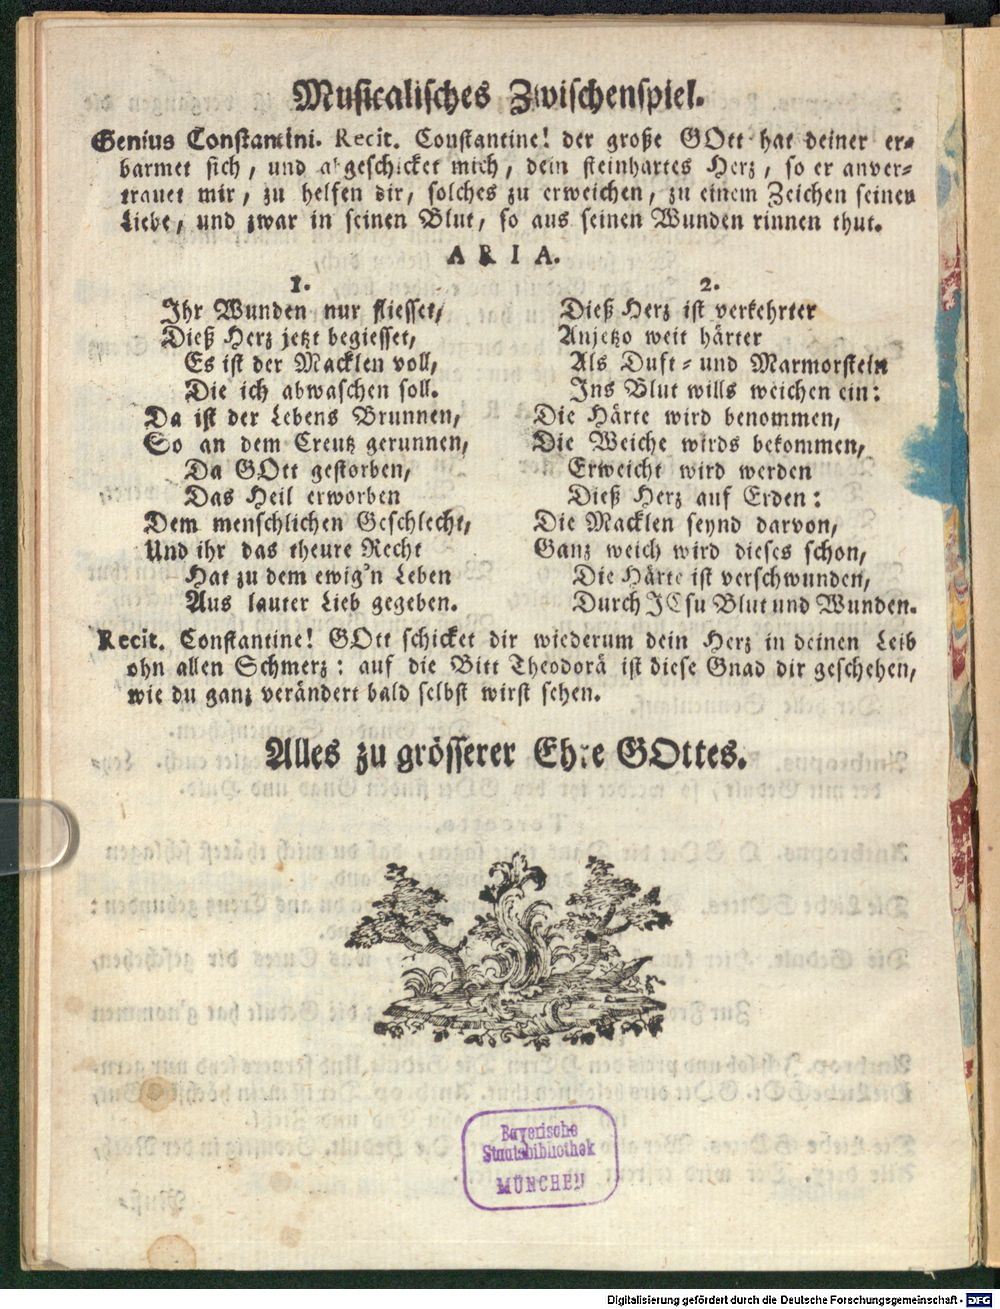 Musicalisches Zwischenspiel.
Genius Constantini. Recit. Constantine! der große GOtt hat deiner er-
barmet sich, und abgeschicket mich, dein steinhartes Herz, so er anver-
trauet mir, zu helfen dir, solches zu erweichen, zu einem Zeichen seiner
Liebe, und zwar in seinen Blut, so aus seinen Wunden rinnen thut.
ARIA.
1.
Ihr Wunden nur fliesset,
Dieß Herz jetzt begiesset,
Es ist der Macklen voll,
Die ich abwaschen soll.
Da ist der Lebens Brunnen,
So an dem Creutz gerunnen,
Da GOtt gestorben,
Das Heil erworben
Dem menschlichen Geschlecht,
Und ihr das theure Recht
Hat zu dem ewig'n Leben
Aus lauter Lieb gegeben.
2.
Dieß Herz ist verkehrter
Anjetzo weit härter
Als Duft- und Marmorstein
Ins Blut wills weichen ein:
Die Härte wird benommen,
Die Weiche wirds bekommen,
Erweicht wird werden
Dieß Herz auf Erden:
Die Macklen seynd darvon,
Ganz weich wird dieses schon,
Die Härte ist verschwunden,
Durch JEsu Blut und Wunden.
Recit. Constantine! GOtt schicket dir wiederum dein Herz in deinen Leib
ohn allen Schmerz: auf die Bitt Theodorä ist diese Gnad dir geschehen,
wie du ganz verändert bald selbst wirst sehen.
Alles zu grösserer Ehre GOttes.
Bayerische
Staatsbibliothek
MÜNCHEN
Digitalisierung gefördert durch die Deutsche Forschungsgemeinschaft - DFG